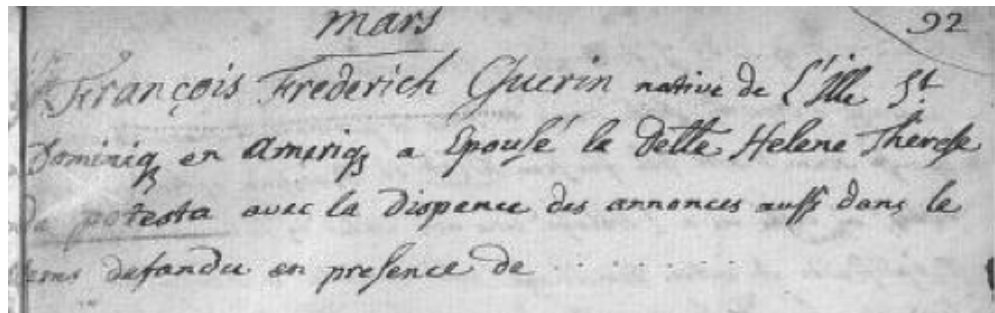 mars 92
François Frederich Guerin native de L'Ille St.
Dominiq en Ameriq a Epousé la Delle Helene Therese
potesta avec la Dispence des annonces aussi dans le
tems defandu en presence de . . . . . . . .